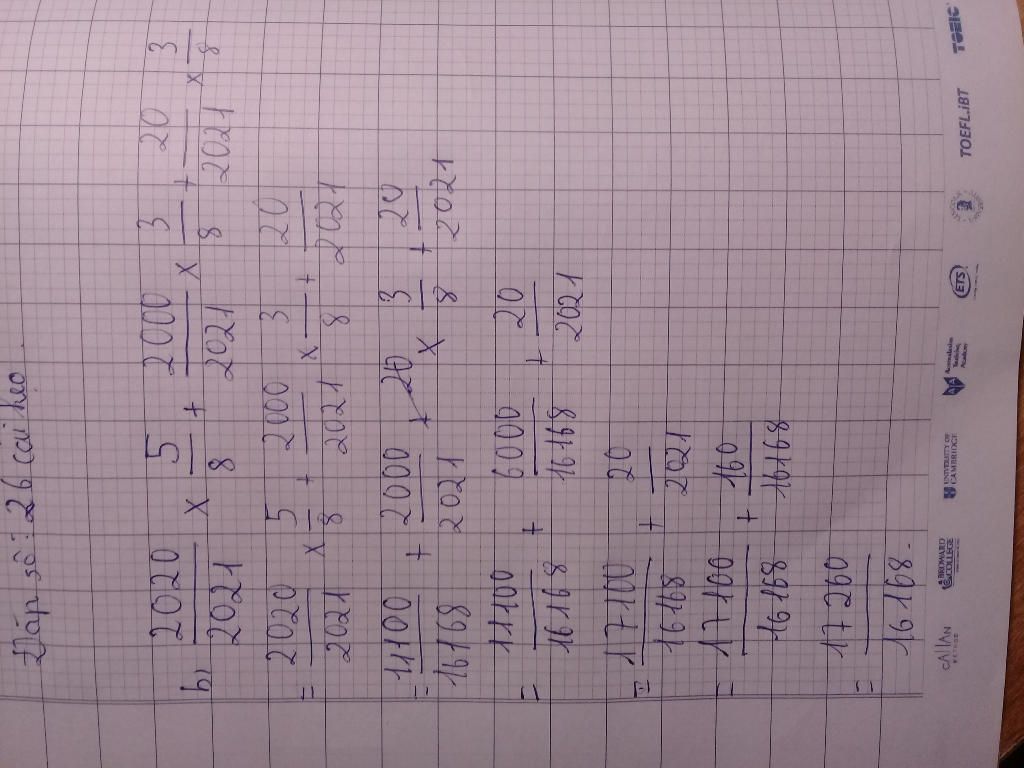 Đáp số: 26 cái kẹo
b) 2020/2021 x 5/8 + 2000/2021 x 3/8 + 20/2021 x 3/8
= 2020/2021 x 5/8 + 2000/2021 x 3/8 + 20/2021
= 11100/16168 + 2000/2021 + 20 x 3/8 + 20/2021
= 11100/16168 + 6000/16168 + 20/2021
= 17100/16168 + 20/2021
= 17100/16168 + 160/16168
= 17260/16168.
CALLAN METHOD
BROWARD COLLEGE
UNIVERSITY OF CAMBRIDGE
ETS
TOEFL.iBT
TOEIC